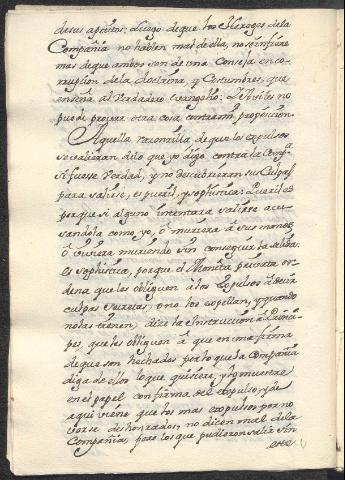 de sus apostos. Luego de que los Hereges de la
Compañia no hablen mas de ella, no se infiere
mas de que ambos son de una Conseja en co-
rrupcion de la doctrina, y Costumbres, que
enseña al verdadero evangelio: no
puede probar otra cosa contra mi proposicion.
Aquella razoncilla de que los expulsos
se valieran de lo que yo digo contra la Compª
si fuese verdad, y no descubrieran sus Culpas
para salirse, es pueril, y sophistica: Pueril es
porque si alguno intentara salirse acu-
sandola como yo, ò muriera à sus manos
ò viviera muriendo sin conseguir la salida:
es sophistica, porque el Monita privata or-
dena que les obliguen à los expulsos à decir
culpas secretas, ò no los expellan, y quando
no las tienen, dice la Instruccion à Princi-
pes, que les obliguen à que en una firma
de que son hechados por lo que la Compañia
diga de ellos lo que quisiere, y lo muestre
en el papel con firma del expulso, y de
aqui viene que los mas expulsos por no
verse deshonrados, no dicen mal de la
Compañia, pero los que pudieron salir sin
este